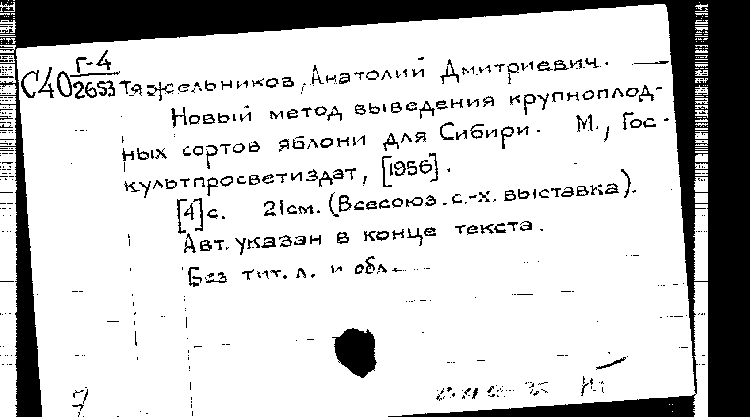 Г-4
С40 2653 Тяжельников, Анатолий Дмитриевич. —
Новый метод выведения крупноплод-
ных сортов яблони для Сибири. М., Гос-
культпросветиздат, [1956].
[4] с. 21см. (Всесоюз. с.-х. выставка).
Авт. указан в конце текста.
Без тит. л. и обл.